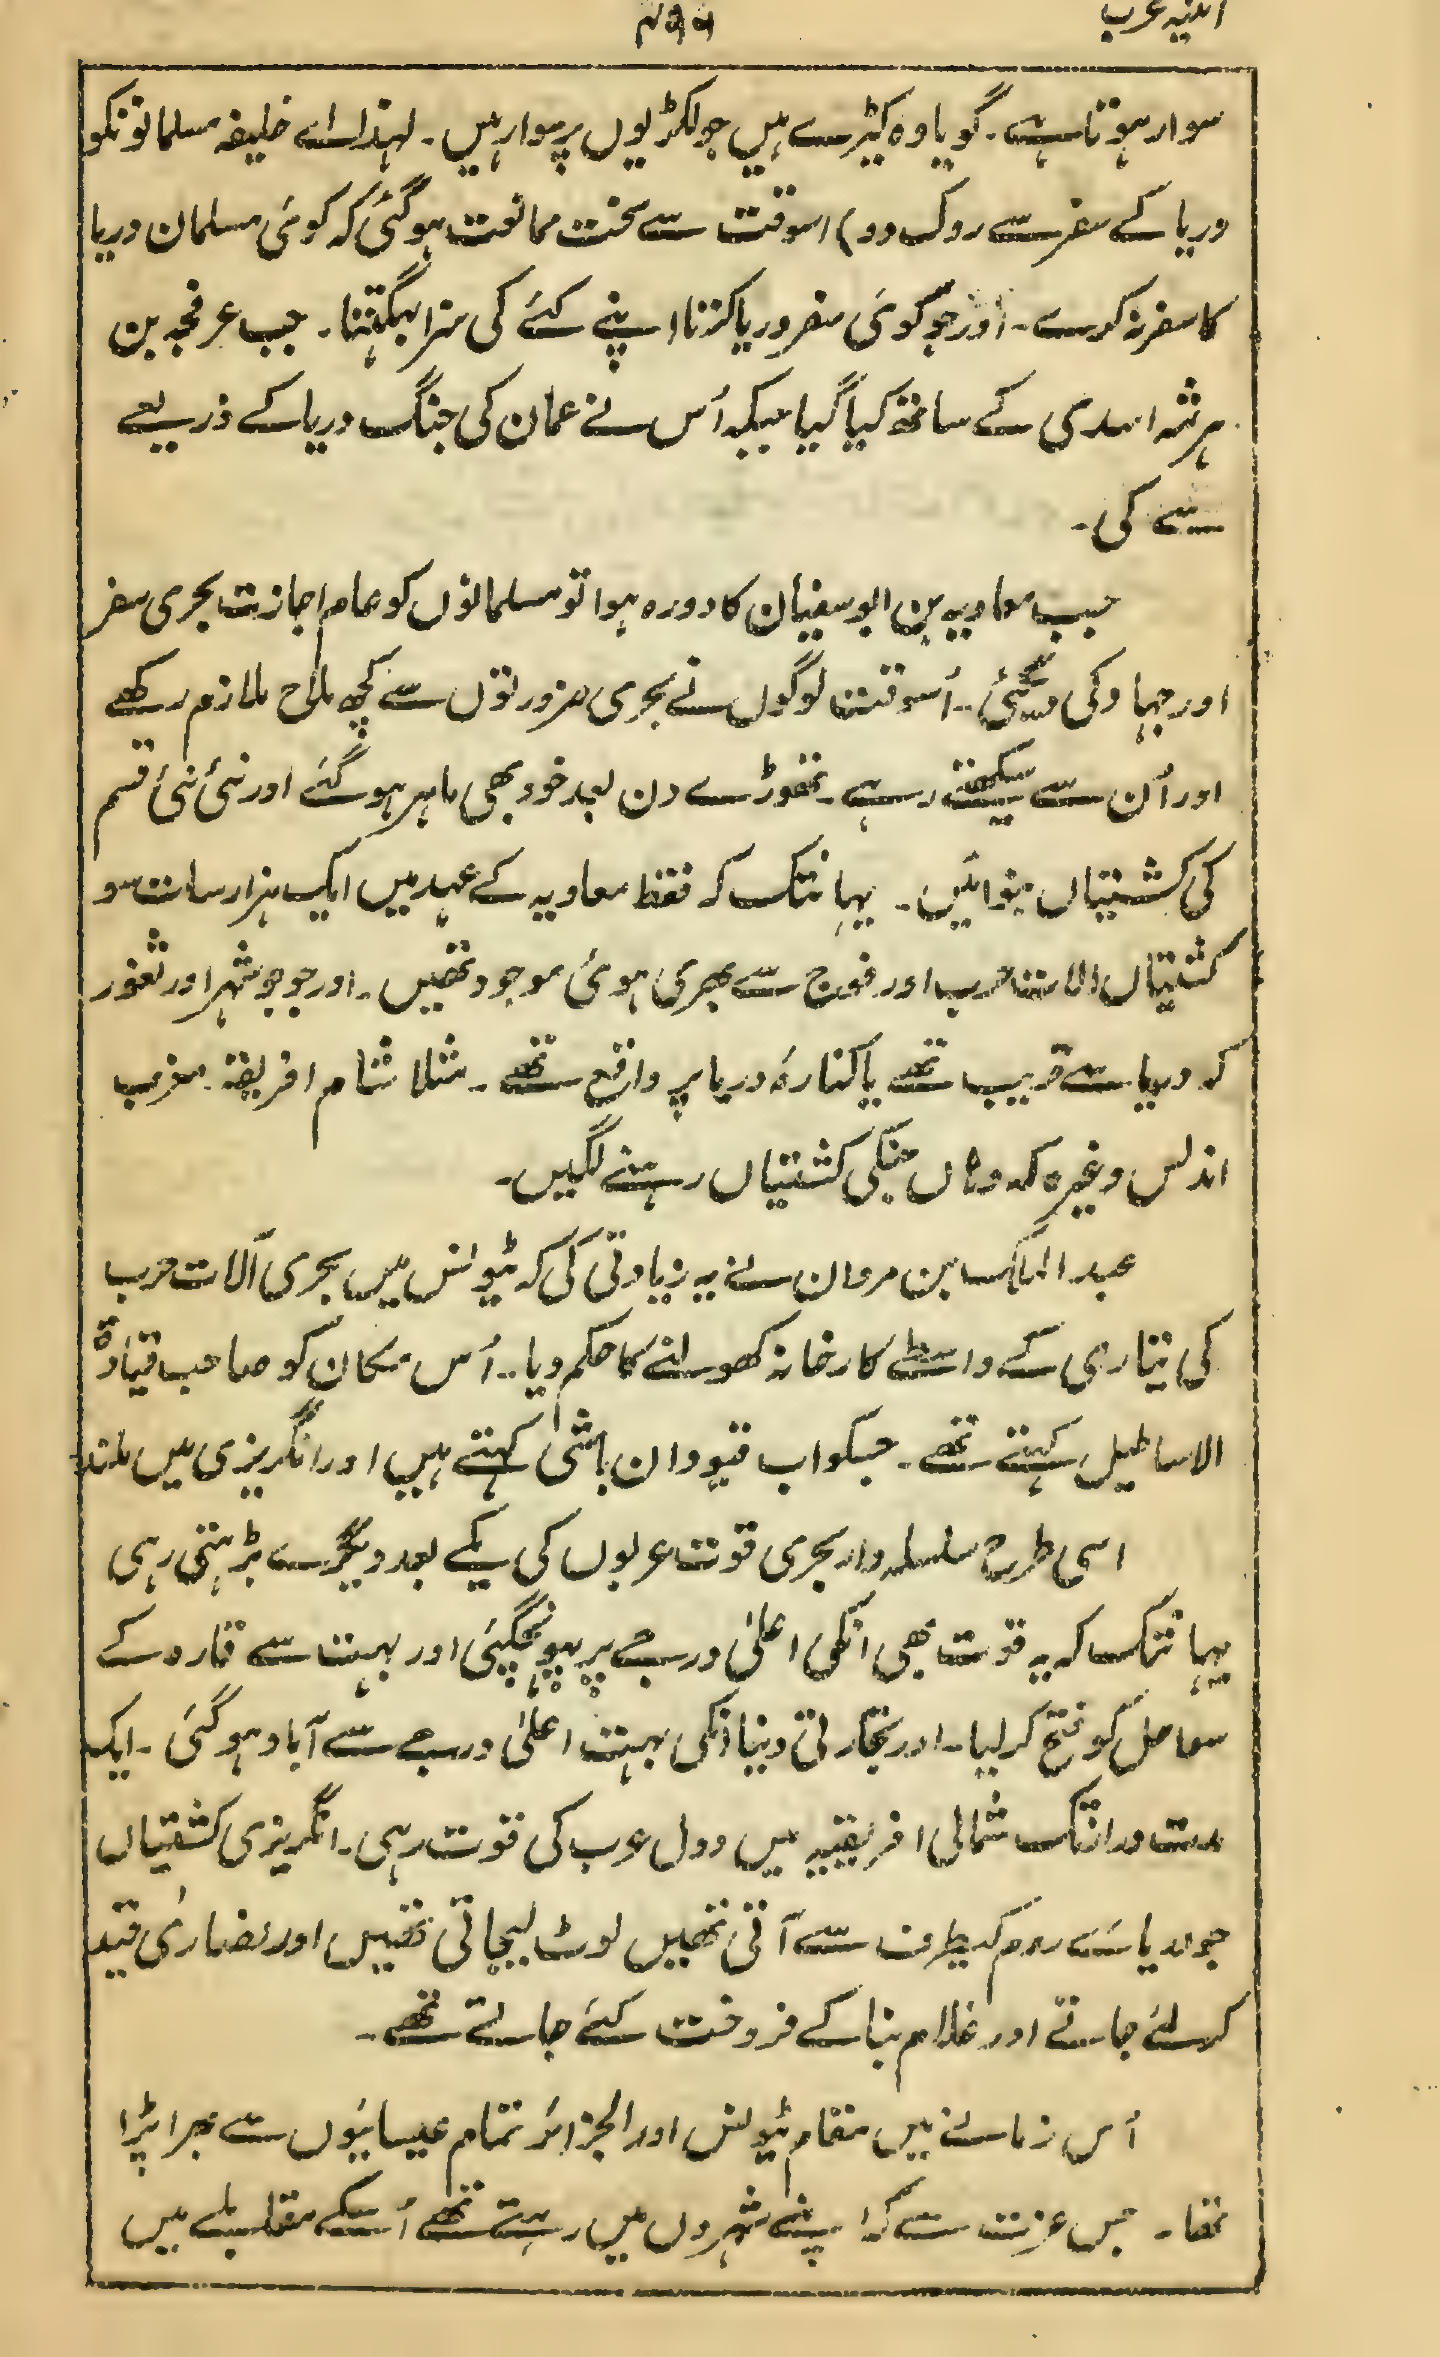 ۴۹۹
سوار ہوتا ہے۔ گویا وہ کیڑے ہیں جو لکڑیوں پر سوار ہیں۔ لہذا اے خلیفہ مسلمانونکو
دریا کے سفر سے روک دو) اسوقت سے سخت ممانعت ہوگئی کہ کوئی مسلمان دریا
کا سفر نہ کرے۔ اور جو کوئی سفر دریا کرتا اپنے کئے کی سزا بھگتتا۔ جب عرفجہ بن
ہرثمہ اسدی کے ساتھ کیا گیا جبکہ اُس نے عمان کی جنگ دریا کے ذریعے
سے کی۔
جب معاویہ بن ابوسفیان کا دورہ ہوا تو مسلمانوں کو عام اجازت بحری سفر
اور جہاد کی دیگئی۔ اُسوقت لوگوں نے بحری ضرورتوں سے کچھ ملاح ملازم رکھے
اور اُن سے سیکھتے رہے۔ تھوڑے دن بعد خود بھی ماہر ہوگئے اور نئی نئی قسم
کی کشتیاں بنوائیں۔ یہانتک کہ فقط معاویہ کے عہد میں ایک ہزار سات سو
کشتیاں الات حرب اور فوج سے بھری ہوئی موجود تھیں۔ اور جو جو شہر اور ثغور
کہ دریا سے قریب تھے یا کنارۂ دریا پر واقع تھے۔ مثلا شام افریقہ۔ مغرب
اندلس وغیرہ کہ وہاں جنگی کشتیاں رہنے لگیں۔
عبد الملک بن مروان نے یہ زیادتی کی کہ ٹیونس میں بحری آلات حرب
کی تیاری کے واسطے کارخانہ کھولنے کا حکم دیا۔ اُس مکان کو صاحب قیادۃ
الاساطیل کہتے تھے۔ جسکو اب قیودان باشی کہتے ہیں اور انگریزی میں ملند
اسی طرح سلسلہ وار بحری قوت عربوں کی یکے بعد دیگرے بڑہتی رہی
یہانتک کہ یہ قوت بھی انکی اعلیٰ درجے پر پہونچگئی اور بہت سے قارہ کے
سواحل کو فتح کر لیا۔ اور تجارتی دنیا انکی بہت اعلیٰ درجے سے آباد ہوگئی۔ ایک
مدت دراتک شمالی افریقیہ میں دول عرب کی قوت رہی۔ انگریزی کشتیاں
جو دریائے روم کیطرف سے آتی تھیں لوٹ لیجاتی تھیں اور نصاریٰ قید
کر لئے جاتے اور غلام بنا کے فروخت کئے جاتے تھے۔
اُس زمانے میں مقام ٹیونس اور الجزائر تمام عیسائیوں سے بھرا پڑا
تھا۔ جس عزت سے کہ اپنے شہروں میں رہتے تھے اُسکے مقابلے میں